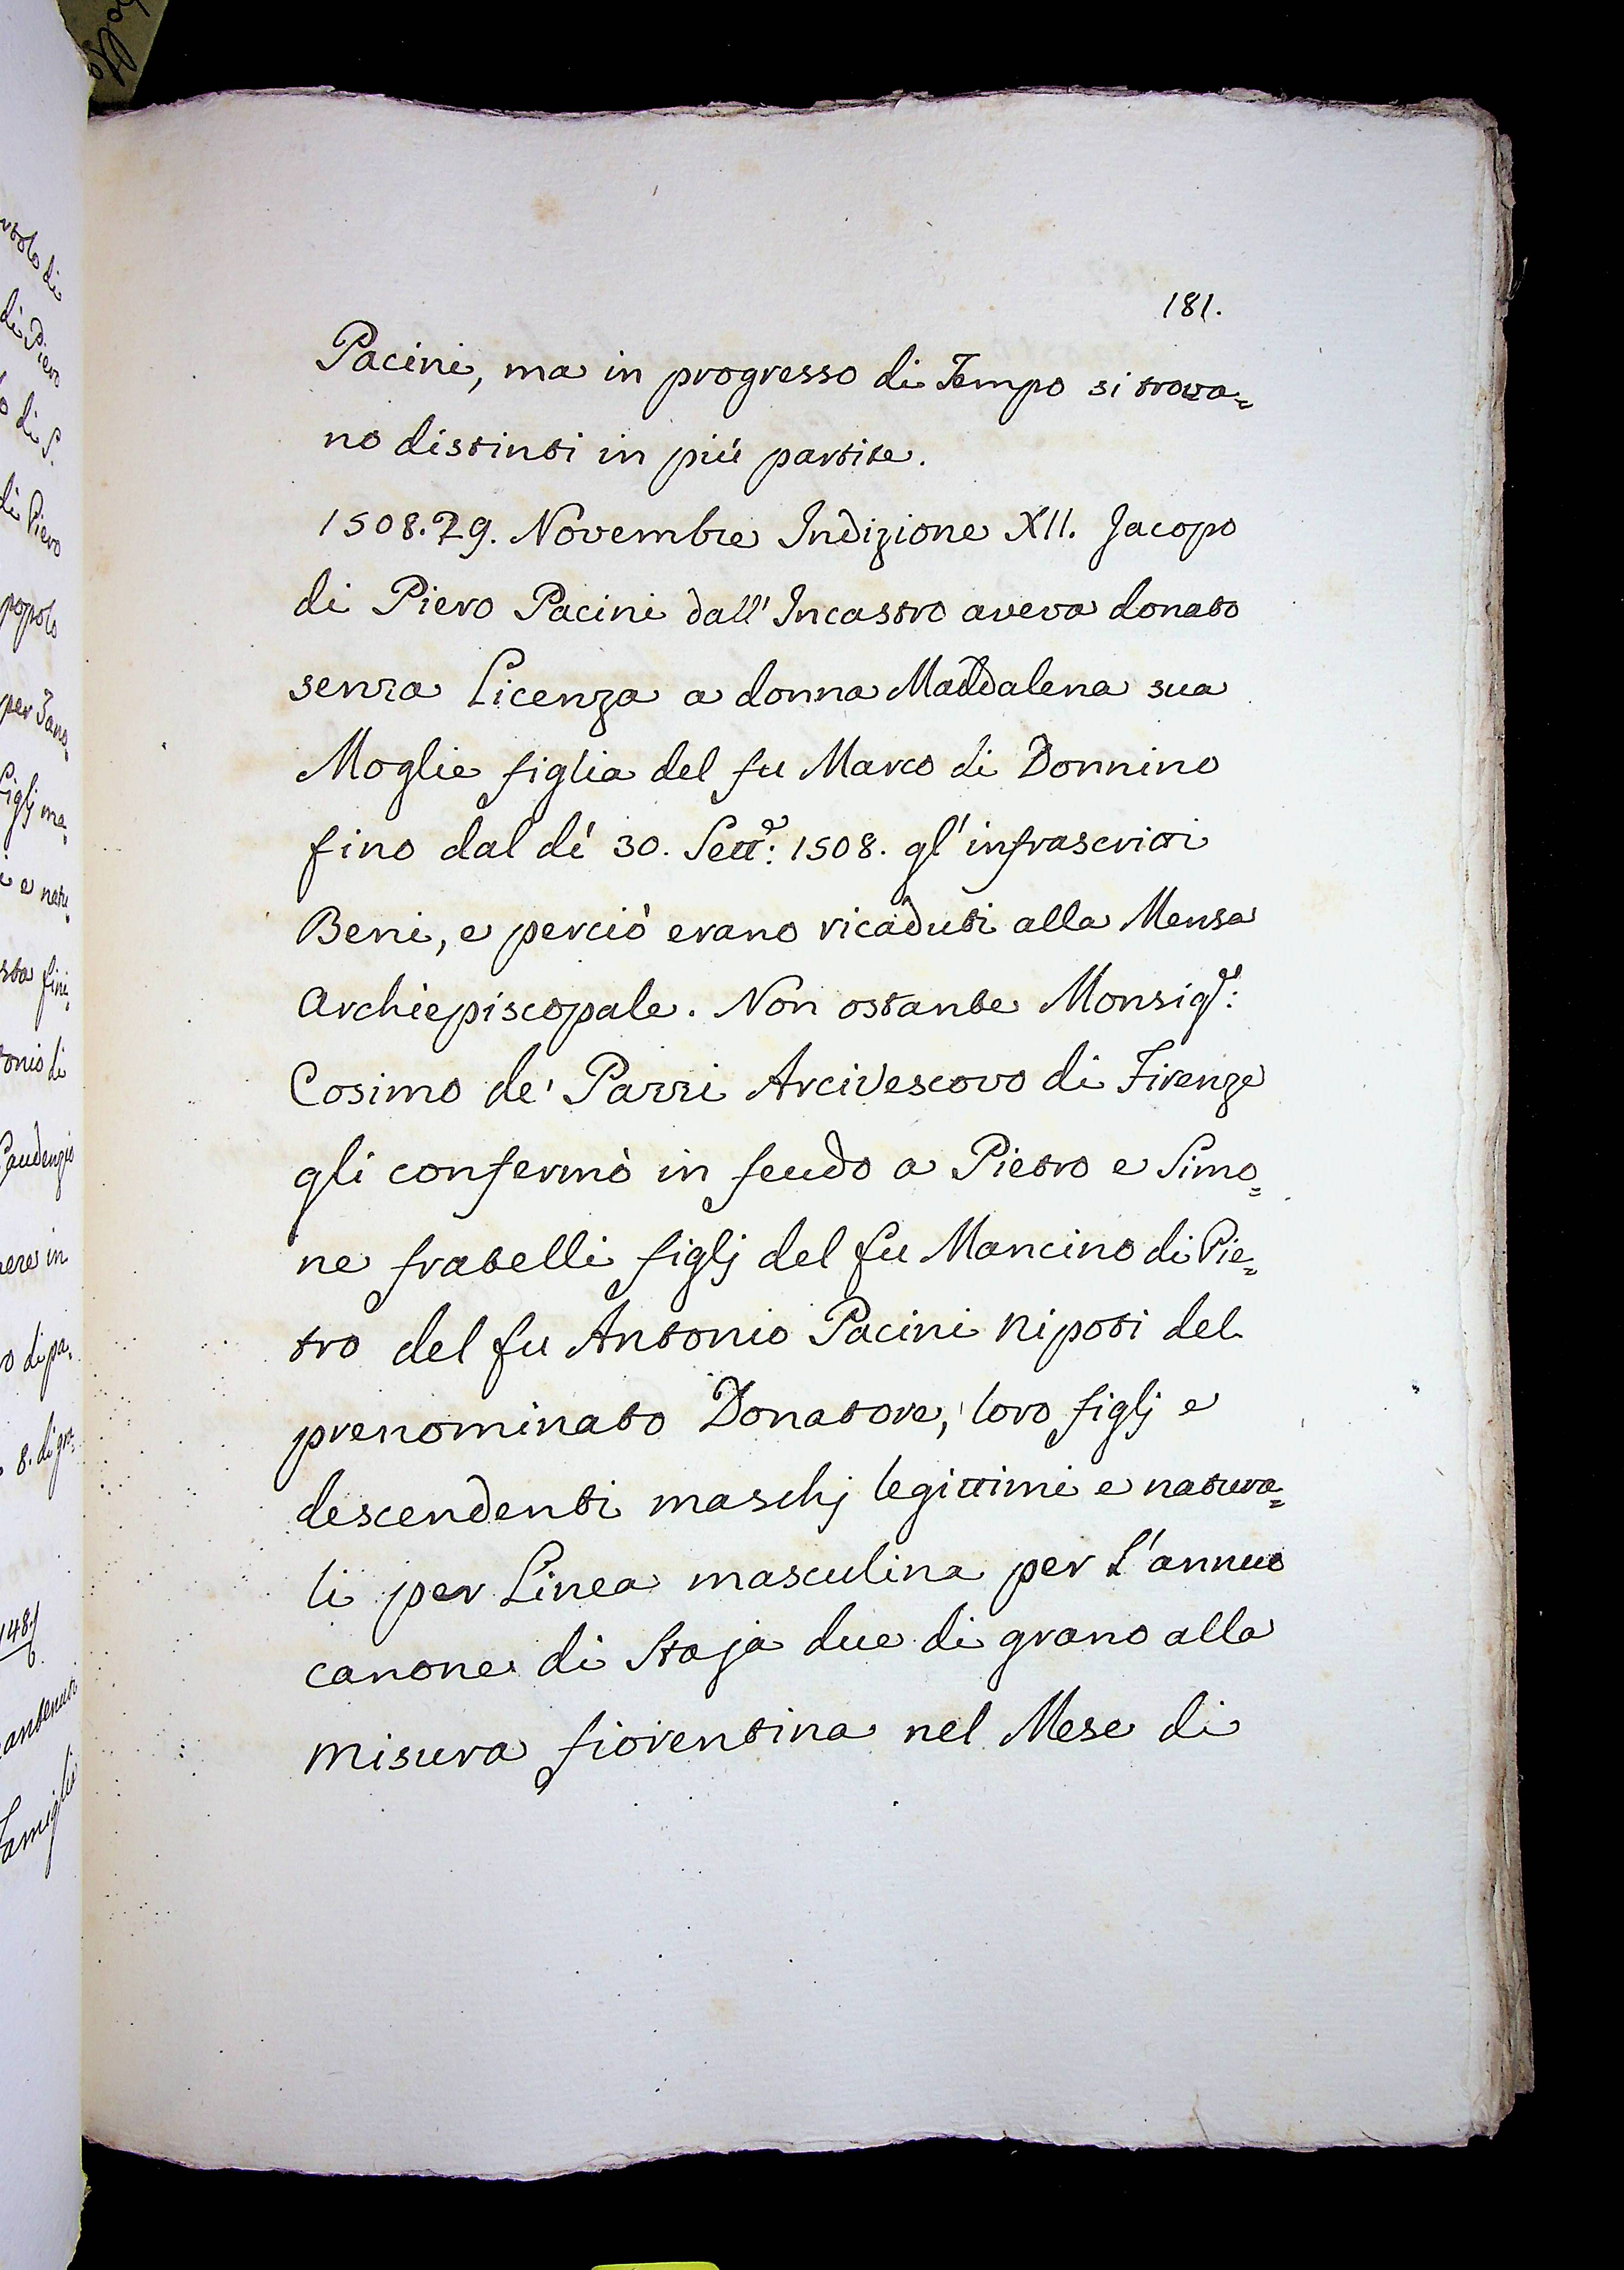 181.
Pacini, ma in progresso di Tempo si trova=
no distinti in più partite.
1508. 29. Novembre Indizione XII. Jacopo
di Piero Pacini dall' Incastro aveva donato
senza Licenza a donna Maddalena sua
Moglie figlia del fu Marco di Donnino
fino dal dì 30. Sett.e: 1508. gl' infrascritti
Beni, e perciò erano ricaduti alla Mensa
Archiepiscopale. Non ostante Monsig.r:
Cosimo de' Pazzi Arcivescovo di Firenze
gli confermò in feudo a Pietro e Simo=
ne fratelli figlj del fu Mancino di Pie=
tro del fu Antonio Pacini Nipoti del
prenominato Donatore, loro figlj e
descendenti maschj legittimi e natura=
li per Linea masculina per l'annuo
canone di Staja due di grano alla
misura fiorentina nel Mese di
di Piero
di S.
di Piero
popolo
Figlj ma=
onio di
Gaudenzio
8. di gra=
Famiglia